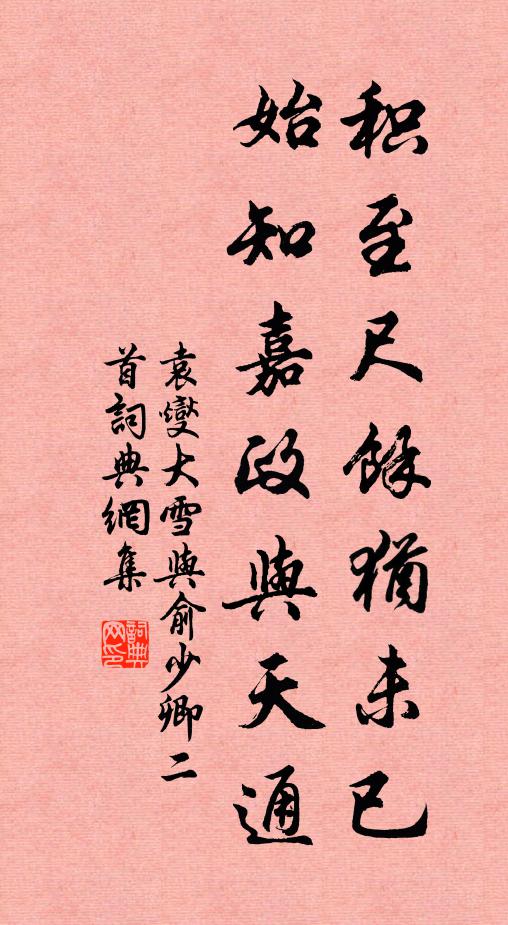 积至尺餘猶未已
始知嘉政與天通
袁燮大雪與俞少卿二
首詞典網集
詞典
网印